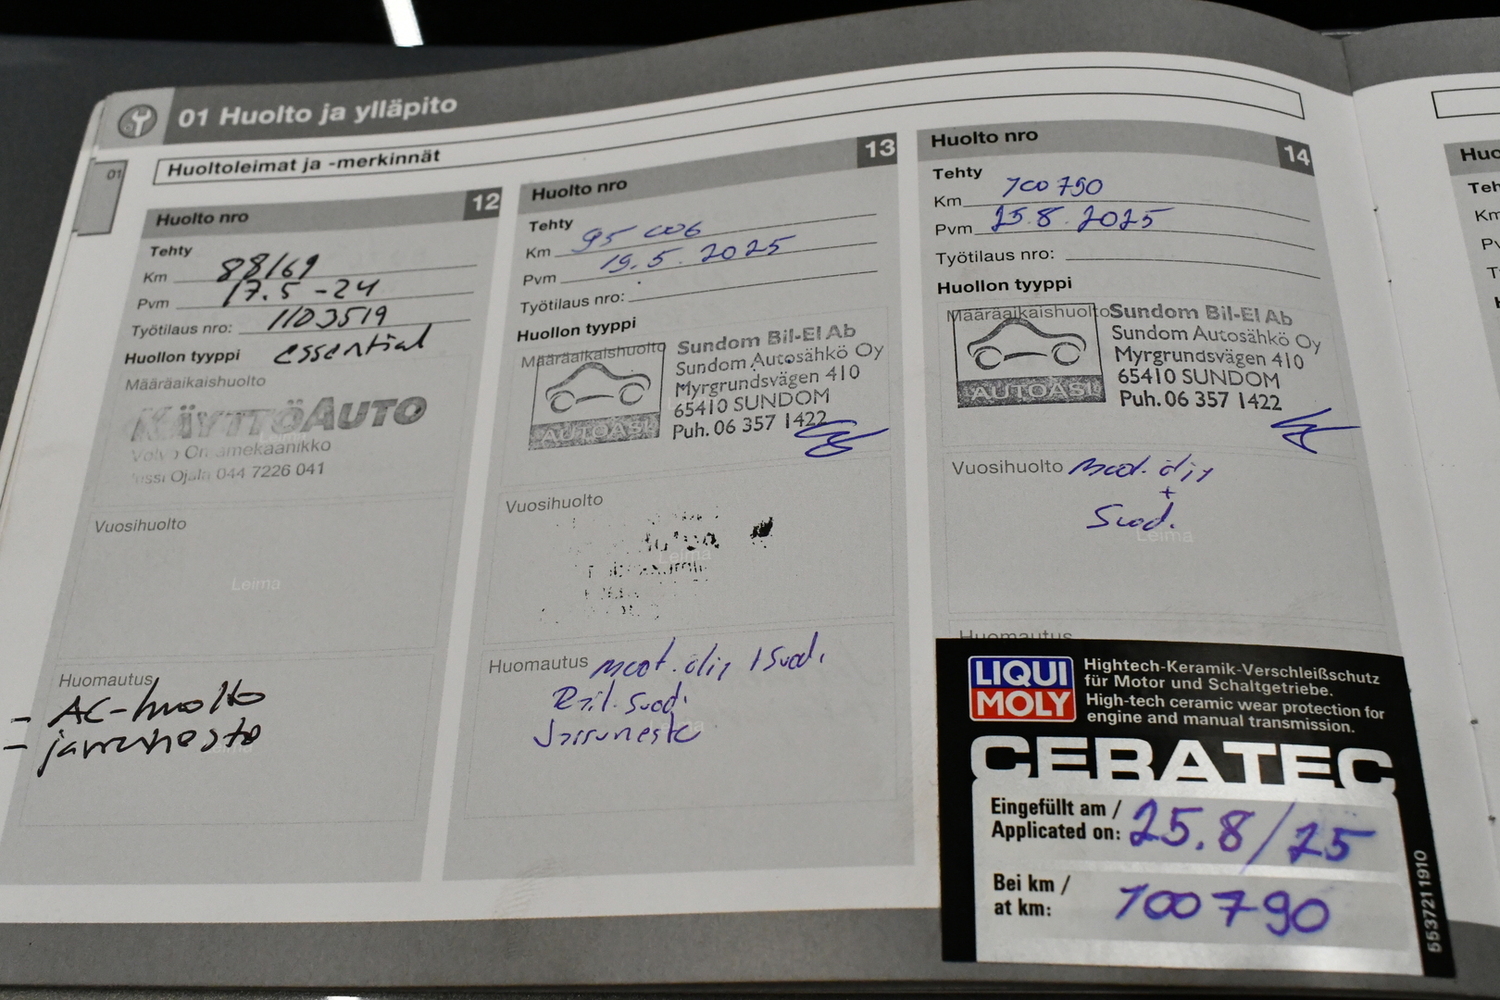 01 Huolto ja ylläpito
01
Huoltoleimat ja -merkinnät
Huolto nro 12
Tehty
Km 88169
Pvm 17.5 -24
Työtilaus nro: 1103519
Huollon tyyppi essential
Määräaikaishuolto
KÄYTTÖAUTO
044 7226 041
Vuosihuolto
Leima
Huomautus
- AC-huolto
- jarruneste
Huolto nro 13
Tehty
Km 95 006
Pvm 19.5.2025
Työtilaus nro:
Huollon tyyppi
Määräaikaishuolto
AUTOASI
Sundom Bil-El Ab
Sundom Autosähkö Oy
Myrgrundsvägen 410
65410 SUNDOM
Puh. 06 357 1422
Vuosihuolto
Leima
Huomautus moot. öljy / Suod.
Rait. Suod.
Jarruneste
Huolto nro 14
Tehty
Km 100 790
Pvm 25.8.2025
Työtilaus nro:
Huollon tyyppi
Määräaikaishuolto
AUTOASI
Sundom Bil-El Ab
Sundom Autosähkö Oy
Myrgrundsvägen 410
65410 SUNDOM
Puh. 06 357 1422
Vuosihuolto moot. öljy
+
Suod.
Leima
Huomautus
LIQUI
MOLY
Hightech-Keramik-Verschleißschutz
für Motor und Schaltgetriebe.
High-tech ceramic wear protection for
engine and manual transmission.
CERATEC
Eingefüllt am /
Applicated on: 25.8/25
Bei km /
at km: 100 790
5537211910